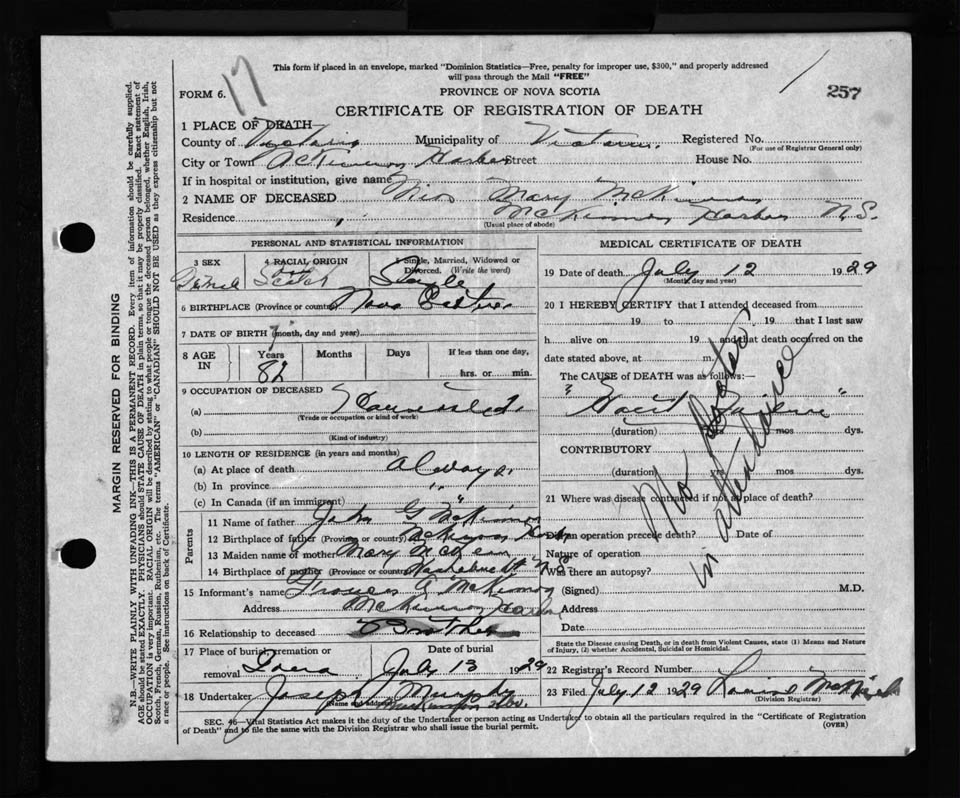 17
This form if placed in an envelope, marked "Dominion Statistics—Free, penalty for improper use, $300," and properly addressed
will pass through the Mail "FREE"
FORM 6.
PROVINCE OF NOVA SCOTIA
257
CERTIFICATE OF REGISTRATION OF DEATH
1 PLACE OF DEATH—
County of Victoria Municipality of Victoria Registered No.
(For use of Registrar General only)
City or Town McKinnon Harbor Street House No.
If in hospital or institution, give name
2 NAME OF DECEASED Miss Mary McKinnon
Residence McKinnon Harbor N.S.
(Usual place of abode)
PERSONAL AND STATISTICAL INFORMATION
3 SEX Female
4 RACIAL ORIGIN Scotch
5 Single, Married, Widowed or Divorced. (Write the word) Single
6 BIRTHPLACE (Province or country) Nova Scotia
7 DATE OF BIRTH (month, day and year)
8 AGE IN Years 82 Months Days If less than one day, hrs. or min.
9 OCCUPATION OF DECEASED
(a)
(Trade or occupation or kind of work)
(b)
(Kind of industry)
10 LENGTH OF RESIDENCE (in years and months)
(a) At place of death Always
(b) In province "
(c) In Canada (if an immigrant) "
Parents
11 Name of father John G McKinnon
12 Birthplace of father (Province or country) McKinnon Harbor
13 Maiden name of mother Mary McLean
14 Birthplace of mother (Province or country) Washabuckt N.S.
15 Informant's name McKinnon
Address McKinnon Harbor
16 Relationship to deceased Brother
17 Place of burial, cremation or removal Iona
Date of burial July 13 1929
18 Undertaker Joseph Murphy
Name and address
MEDICAL CERTIFICATE OF DEATH
19 Date of death July 12 1929
(Month, day and year)
20 I HEREBY CERTIFY that I attended deceased from
19 to , 19 that I last saw
h alive on 19 and that death occurred on the
date stated above, at m.
The CAUSE of DEATH was as follows:—
" Heart Failure "
(duration) yrs mos dys.
CONTRIBUTORY
(duration) yrs mos dys.
21 Where was disease contracted if not at place of death?
Did an operation precede death? Date of
Nature of operation
Was there an autopsy?
(Signed) M.D.
Address
Date
No Doctor
in attendance
State the Disease causing Death, or in Death from Violent Causes, state (1) Means and Nature
of Injury, (2) whether Accidental, Suicidal or Homicidal.
22 Registrar's Record Number
23 Filed July 12 1929
(Division Registrar)
SEC. 46—Vital Statistics Act makes it the duty of the Undertaker or person acting as Undertaker to obtain all the particulars required in the "Certificate of Registration
of Death" and to file the same with the Division Registrar who shall issue the burial permit.
(OVER)
MARGIN RESERVED FOR BINDING
N.B.—WRITE PLAINLY WITH UNFADING INK—THIS IS A PERMANENT RECORD. Every item of information should be carefully supplied.
AGE should be stated EXACTLY. PHYSICIANS should STATE CAUSE OF DEATH in plain terms, so that it may be properly classified. Exact statement of
OCCUPATION is very important. RACIAL ORIGIN will be described by stating to what people or tongue the deceased person belonged, whether English, Irish,
Scotch, French, German, Russian, Ruthenian, etc. The terms "AMERICAN" or "CANADIAN" SHOULD NOT BE USED as they express citizenship but not
a race or people. See instructions on back of Certificate.